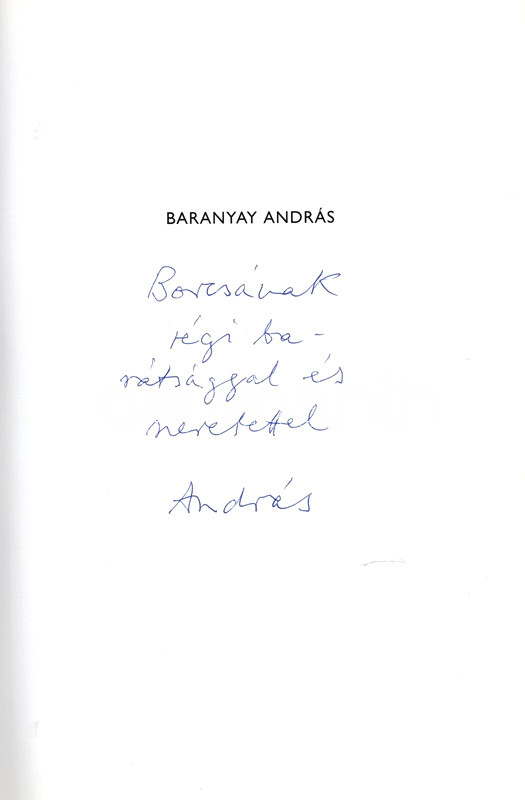 BARANYAY ANDRÁS
Borcsának
régi ba-
rátsággal és
szeretettel
András